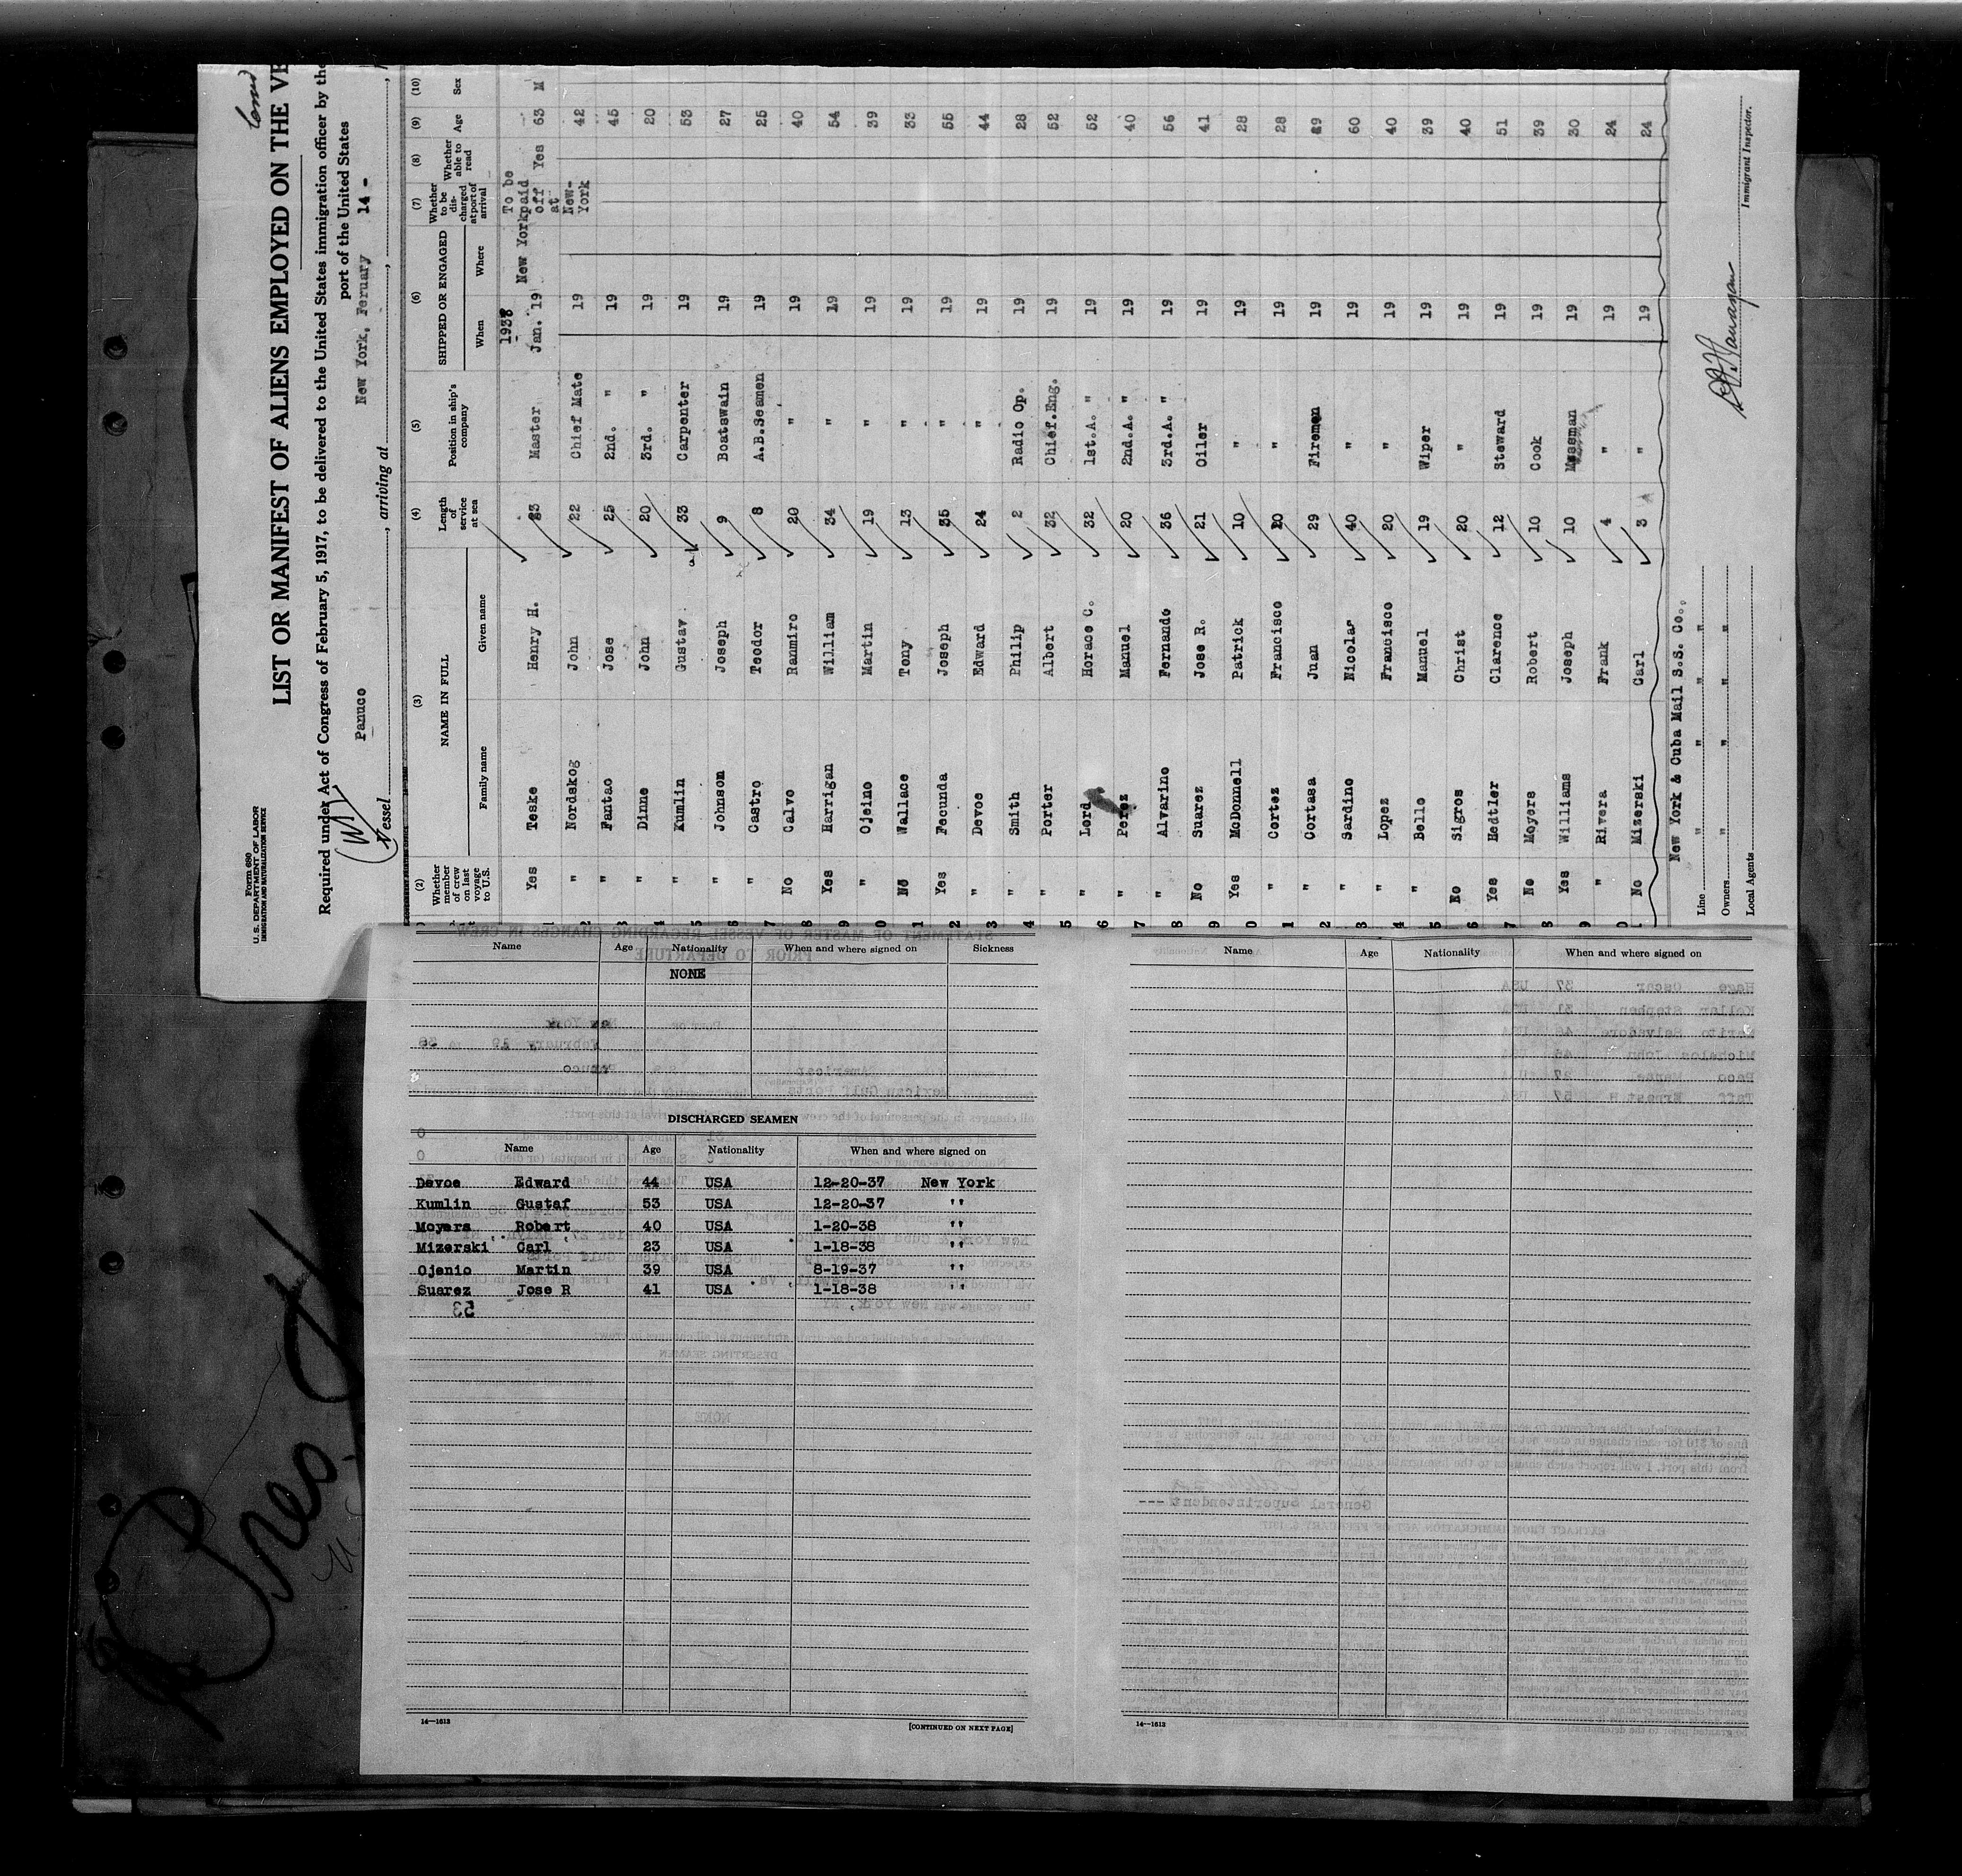 Form 680
U. S. DEPARTMENT OF LABOR
IMMIGRATION AND NATURALIZATION SERVICE
LIST OR MANIFEST OF ALIENS EMPLOYED ON THE VE
Required under Act of Congress of February 5, 1917, to be delivered to the United States immigration officer by the
port of the United States
Vessel Panuco, arriving at New York, Feruary 14 -
(2) (3) (4) (5) (6) (7) (8) (9) (10)
Whether member of crew on last voyage to U.S. NAME IN FULL Family name Given name Length of service at sea Position in ship's company SHIPPED OR ENGAGED When Where Whether to be discharged at port of arrival Whether able to read Age Sex
1938
Yes Teske Henry H. Master Jan. 19 New York To be paid off at New-York Yes 63 M
2 " Nordskog John 22 Chief Mate 19 42
3 " Fantao Jose 25 2nd. " 19 45
4 " Dinne John 20 3rd. " 19 20
5 " Kumlin Gustav 33 Carpenter 19 53
6 " Johnson Joseph 9 Boatswain 19 27
7 " Castro Teodor 8 A.B.Seamen 19 25
8 No Calvo Ranmiro 20 " 19 40
9 Yes Harrigan William 34 " 19 54
0 " Ojeino Martin 19 " 19 39
1 No Wallace Tony 13 " 19 33
2 Yes Fecunda Joseph 35 " 19 55
3 " Devoe Edward 24 " 19 44
4 " Smith Philip 2 Radio Op. 19 28
5 " Porter Albert 32 Chief.Eng. 19 52
6 " Lord Horace C. 32 1st.A. " 19 52
7 " Perez Manuel 20 2nd.A. " 19 40
8 " Alvarino Fernando 36 3rd.A. " 19 56
9 No Suarez Jose R. 21 Oiler 19 41
0 Yes McDonnell Patrick 10 " 19 28
1 " Cortez Francisco 10 " 19 28
2 " Cortasa Juan 29 Firemen 19
3 " Sardino Nicolas 40 " 19 60
4 " Lopez Francisco 20 " 19 40
5 " Bello Manuel 19 Wiper 19 39
6 No Sigros Christ 20 " 19 40
7 Yes Hedtler Clarence 12 Steward 19 51
8 No Moyers Robert 10 Cook 19 39
9 Yes Williams Joseph 10 Messman 19 30
0 " Rivera Frank 4 " 19 24
No Mizerski Carl 3 " 19 24
Line New York & Cuba Mail S.S. Co.,
Owners " " " "
Local Agents " " " "
Immigrant Inspector.
Name Age Nationality When and where signed on Sickness
NONE
DISCHARGED SEAMEN
Name Age Nationality When and where signed on
Devoe Edward 44 USA 12-20-37 New York
Kumlin Gustaf 53 USA 12-20-37 ''
Moyers Robert 40 USA 1-20-38 ''
Mizerski Carl 23 USA 1-18-38 ''
Ojenio Martin 39 USA 8-19-37 ''
Suarez Jose R 41 USA 1-18-38 ''
14—1613 [CONTINUED ON NEXT PAGE]
Name Age Nationality When and where signed on
14—1613